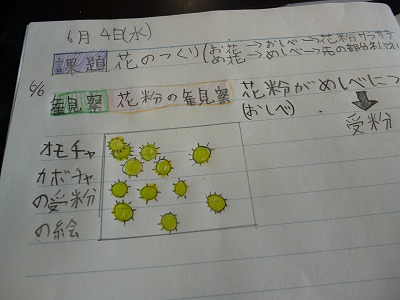 6月4日(水)
課題 花のつくり(お花→おしべ→花粉サラサラ
め花→めしべ→先の部分ネバネバ
6/6
観察 花粉の観察 花粉がめしべにつ
(おしべ)
受粉
オモチャ
カボチャ
の受粉
の絵